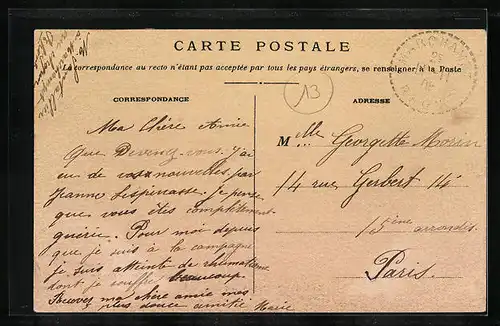 CARTE POSTALE
La correspondance au recto n'étant pas acceptée par tous les pays étrangers, se renseigner à la Poste
13
CORRESPONDANCE
ADRESSE
Ma Chère Amie
Que Devenez-vous. J'ai
eu de vos nouvelles par
Jeanne Je pense
que vous êtes complètement
guérie. Pour moi depuis
que je suis à la campagne
je suis atteinte de rhumatisme
dont je souffre beaucoup
Recevez ma chère amie mes
plus douce amitié Marie
Mlle Georgette Morin
14 rue Gerbert 14
15ème arrondis.
Paris.